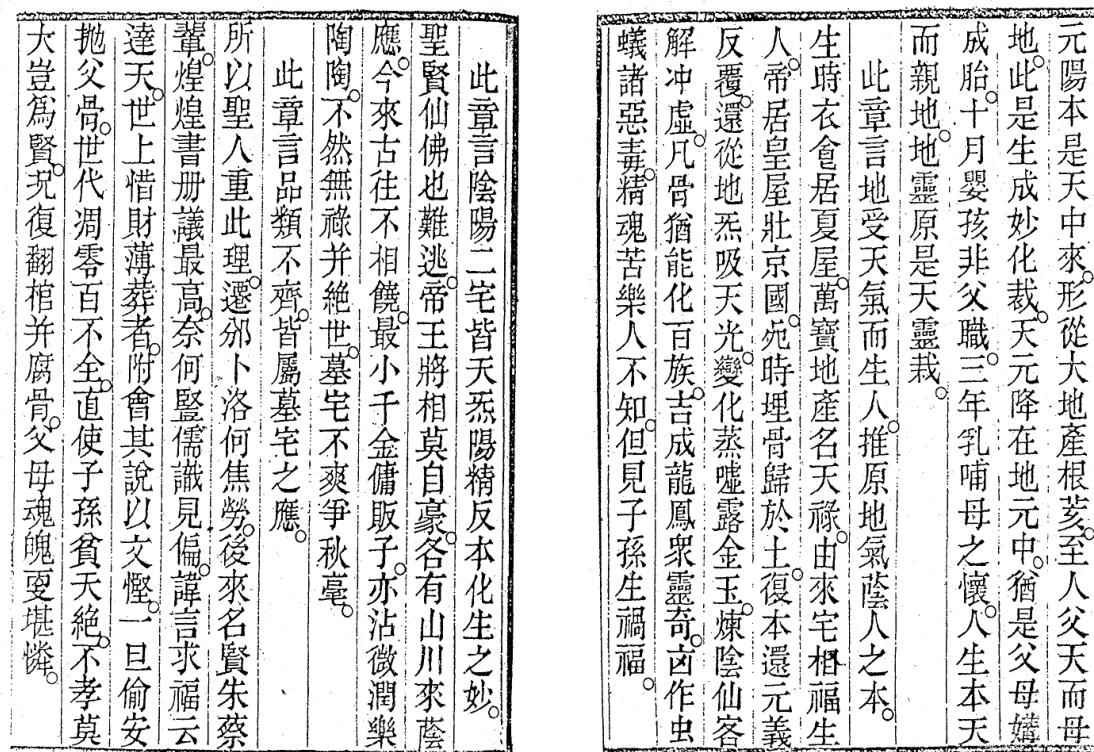 元陽本是天中來。形從大地產根荄。至人父天而母
地。此是生成妙化裁。天元降在地元中。猶是父母媾
成胎。十月嬰孩非父職。三年乳哺母之懷。人生本天
而親地。地靈原是天靈栽。
此章言地受天氣而生人。推原地氣蔭人之本。
生時衣食居夏屋。萬寶地產名天祿。由來宅相福生
人。帝居皇屋壯京國。死時埋骨歸於土。復本還元義
反覆。還從地炁吸天光。變化蒸噓露金玉。煉陰仙客
解冲虛。凡骨猶能化百族。吉成龍鳳衆靈奇。凶作虫
蟻諸惡毒。精魂苦樂人不知。但見子孫生禍福。
此章言陰陽二宅皆天炁陽精反本化生之妙。
聖賢仙佛也難逃。帝王將相莫自豪。各有山川來蔭
應。今來古往不相饒。最小千金傭販子。亦沾微潤樂
陶陶。不然無祿并絕世。墓宅不爽爭秋毫。
此章言品類不齊。皆屬墓宅之應。
所以聖人重此理。遷邠卜洛何焦勞。後來名賢朱蔡
輩。煌煌書册議最高。奈何豎儒識見偏。諱言求福云
達天。世上惜財薄葬者。附會其說以文慳。一旦偷安
拋父骨。世代凋零百不全。直使子孫貧天絕。不孝莫
大豈爲賢。况復翻棺并腐骨。父母魂魄更堪憐。